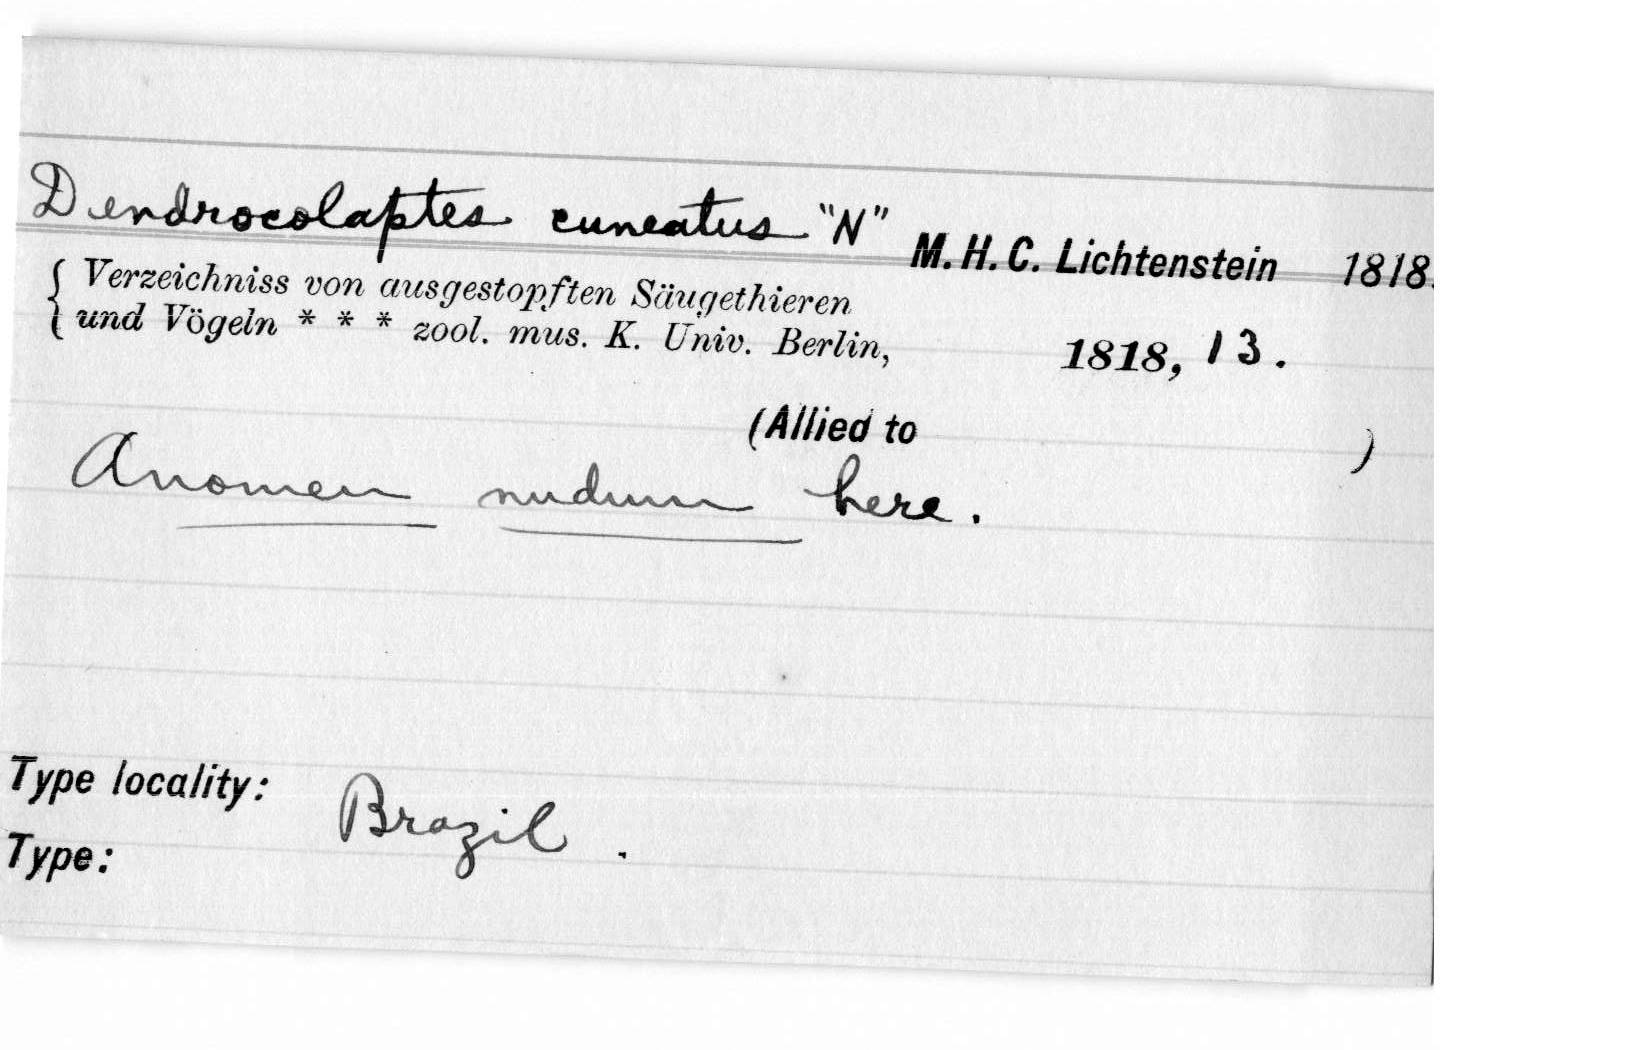 Dendrocolaptes cuneatus "N" M. H. C. Lichtenstein 1818.
{ Verzeichniss von ausgestopften Säugethieren
und Vögeln * * * zool. mus. K. Univ. Berlin, 1818, 13.
(Allied to )
A nomen nudum here.
Type locality: Brazil.
Type: